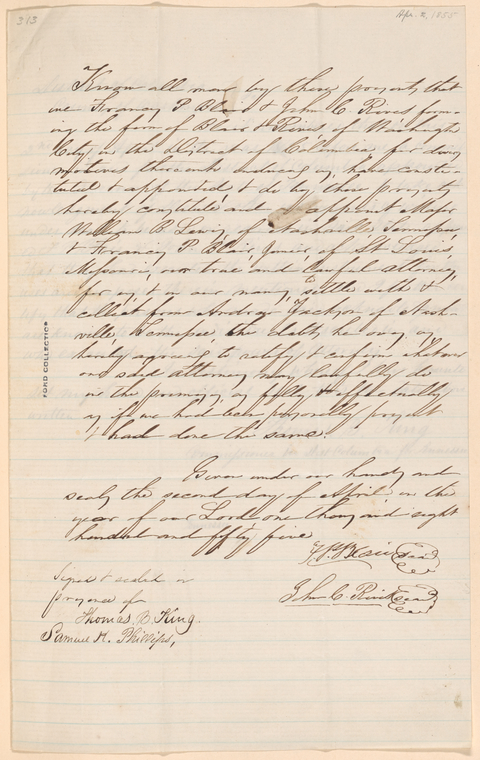 313
Apr. 2, 1855
Know all men by these presents that
we Francis P Blair & John C Rives form-
ing the firm of Blair & Rives, of Washington
City in the District of Columbia, for divers
motives thereunto inducing us, have consti-
tuted & appointed, & do by these presents
hereby constitute and appoint Major
William B Lewis of Nashville Tennessee,
& Francis P. Blair, Junior, of St Louis,
Missouri, our true and lawful attorneys,
for us, & in our names, to settle with &
collect from Andrew Jackson of Nash-
ville, Tennessee, the debts he owes us,
hereby agreeing to ratify & confirm whatever
our said attorneys may lawfully do
in the premises, as fully & effectually
as if we had been personally present
& had done the same.
Given under our hands and
seals the second day of April, in the
year of our Lord one thous and eight
hundred and fifty five
F P Blair seal
John C. Rives seal
Signed & sealed in
presence of
Thomas B. King.
Samuel H. Phillips,
FORD COLLECTION